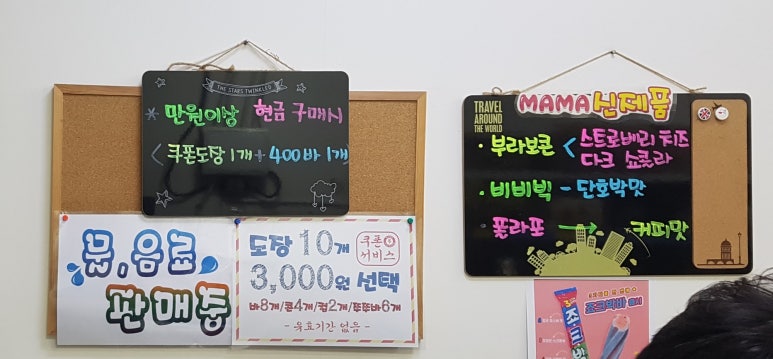 THE STARS TWINKLED
* 만원이상 현금 구매시
< 쿠폰도장 1개 + 400바 1개
물, 음료
판매중
도장 10개
쿠폰
서비스
3,000원 선택
바8개/콘4개/컵2개/쭈쭈바6개
- 유효기간 없음 -
TRAVEL
AROUND
THE WORLD
MAMA 신제품
· 부라보콘 < 스트로베리 치즈
다크 쇼콜라
· 비비빅 - 단호박맛
폴라포 → 커피맛
죠크박바 출시